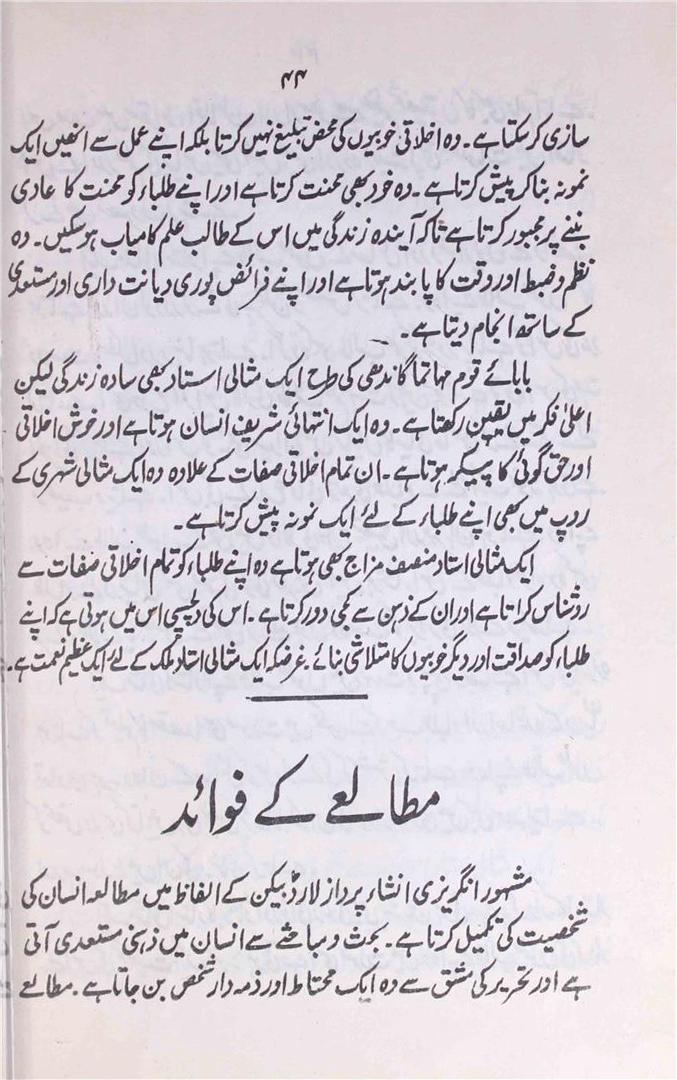 ۴۴
سازی کر سکتا ہے۔ وہ اخلاقی خوبیوں کی محض تبلیغ نہیں کرتا بلکہ اپنے عمل سے انھیں ایک
نمونہ بنا کر پیش کرتا ہے۔ وہ خود بھی محنت کرتا ہے اور اپنے طلباء کو محنت کا عادی
بننے پر مجبور کرتا ہے تاکہ آیندہ زندگی میں اس کے طالب علم کامیاب ہو سکیں۔ وہ
نظم و ضبط اور وقت کا پابند ہوتا ہے اور اپنے فرائض پوری دیانت داری اور مستعدی
کے ساتھ انجام دیتا ہے۔
بابائے قوم مہاتما گاندھی کی طرح ایک مثالی استاد بھی سادہ زندگی لیکن
اعلیٰ فکر میں یقین رکھتا ہے۔ وہ ایک انتہائی شریف انسان ہوتا ہے اور خوش اخلاقی
اور حق گوئی کا پیکر ہوتا ہے۔ ان تمام اخلاقی صفات کے علاوہ وہ ایک مثالی شہری کے
روپ میں بھی اپنے طلباء کے لئے ایک نمونہ پیش کرتا ہے۔
ایک مثالی استاد منصف مزاج بھی ہوتا ہے وہ اپنے طلباء کو تمام اخلاقی صفات سے
روشناس کراتا ہے اور ان کے ذہن سے کجی دور کرتا ہے۔ اس کی دلچسپی اس میں ہوتی ہے کہ اپنے
طلباء کو صداقت اور دیگر خوبیوں کا متلاشی بنائے۔ غرضکہ ایک مثالی استاد ملک کے لئے ایک عظیم نعمت ہے۔
مطالعے کے فوائد
مشہور انگریزی انشاء پرداز لارڈ بیکن کے الفاظ میں مطالعہ انسان کی
شخصیت کی تکمیل کرتا ہے۔ بحث و مباحثے سے انسان میں ذہنی مستعدی آتی
ہے اور تحریر کی مشق سے وہ ایک محتاط اور ذمہ دار شخص بن جاتا ہے۔ مطالعے